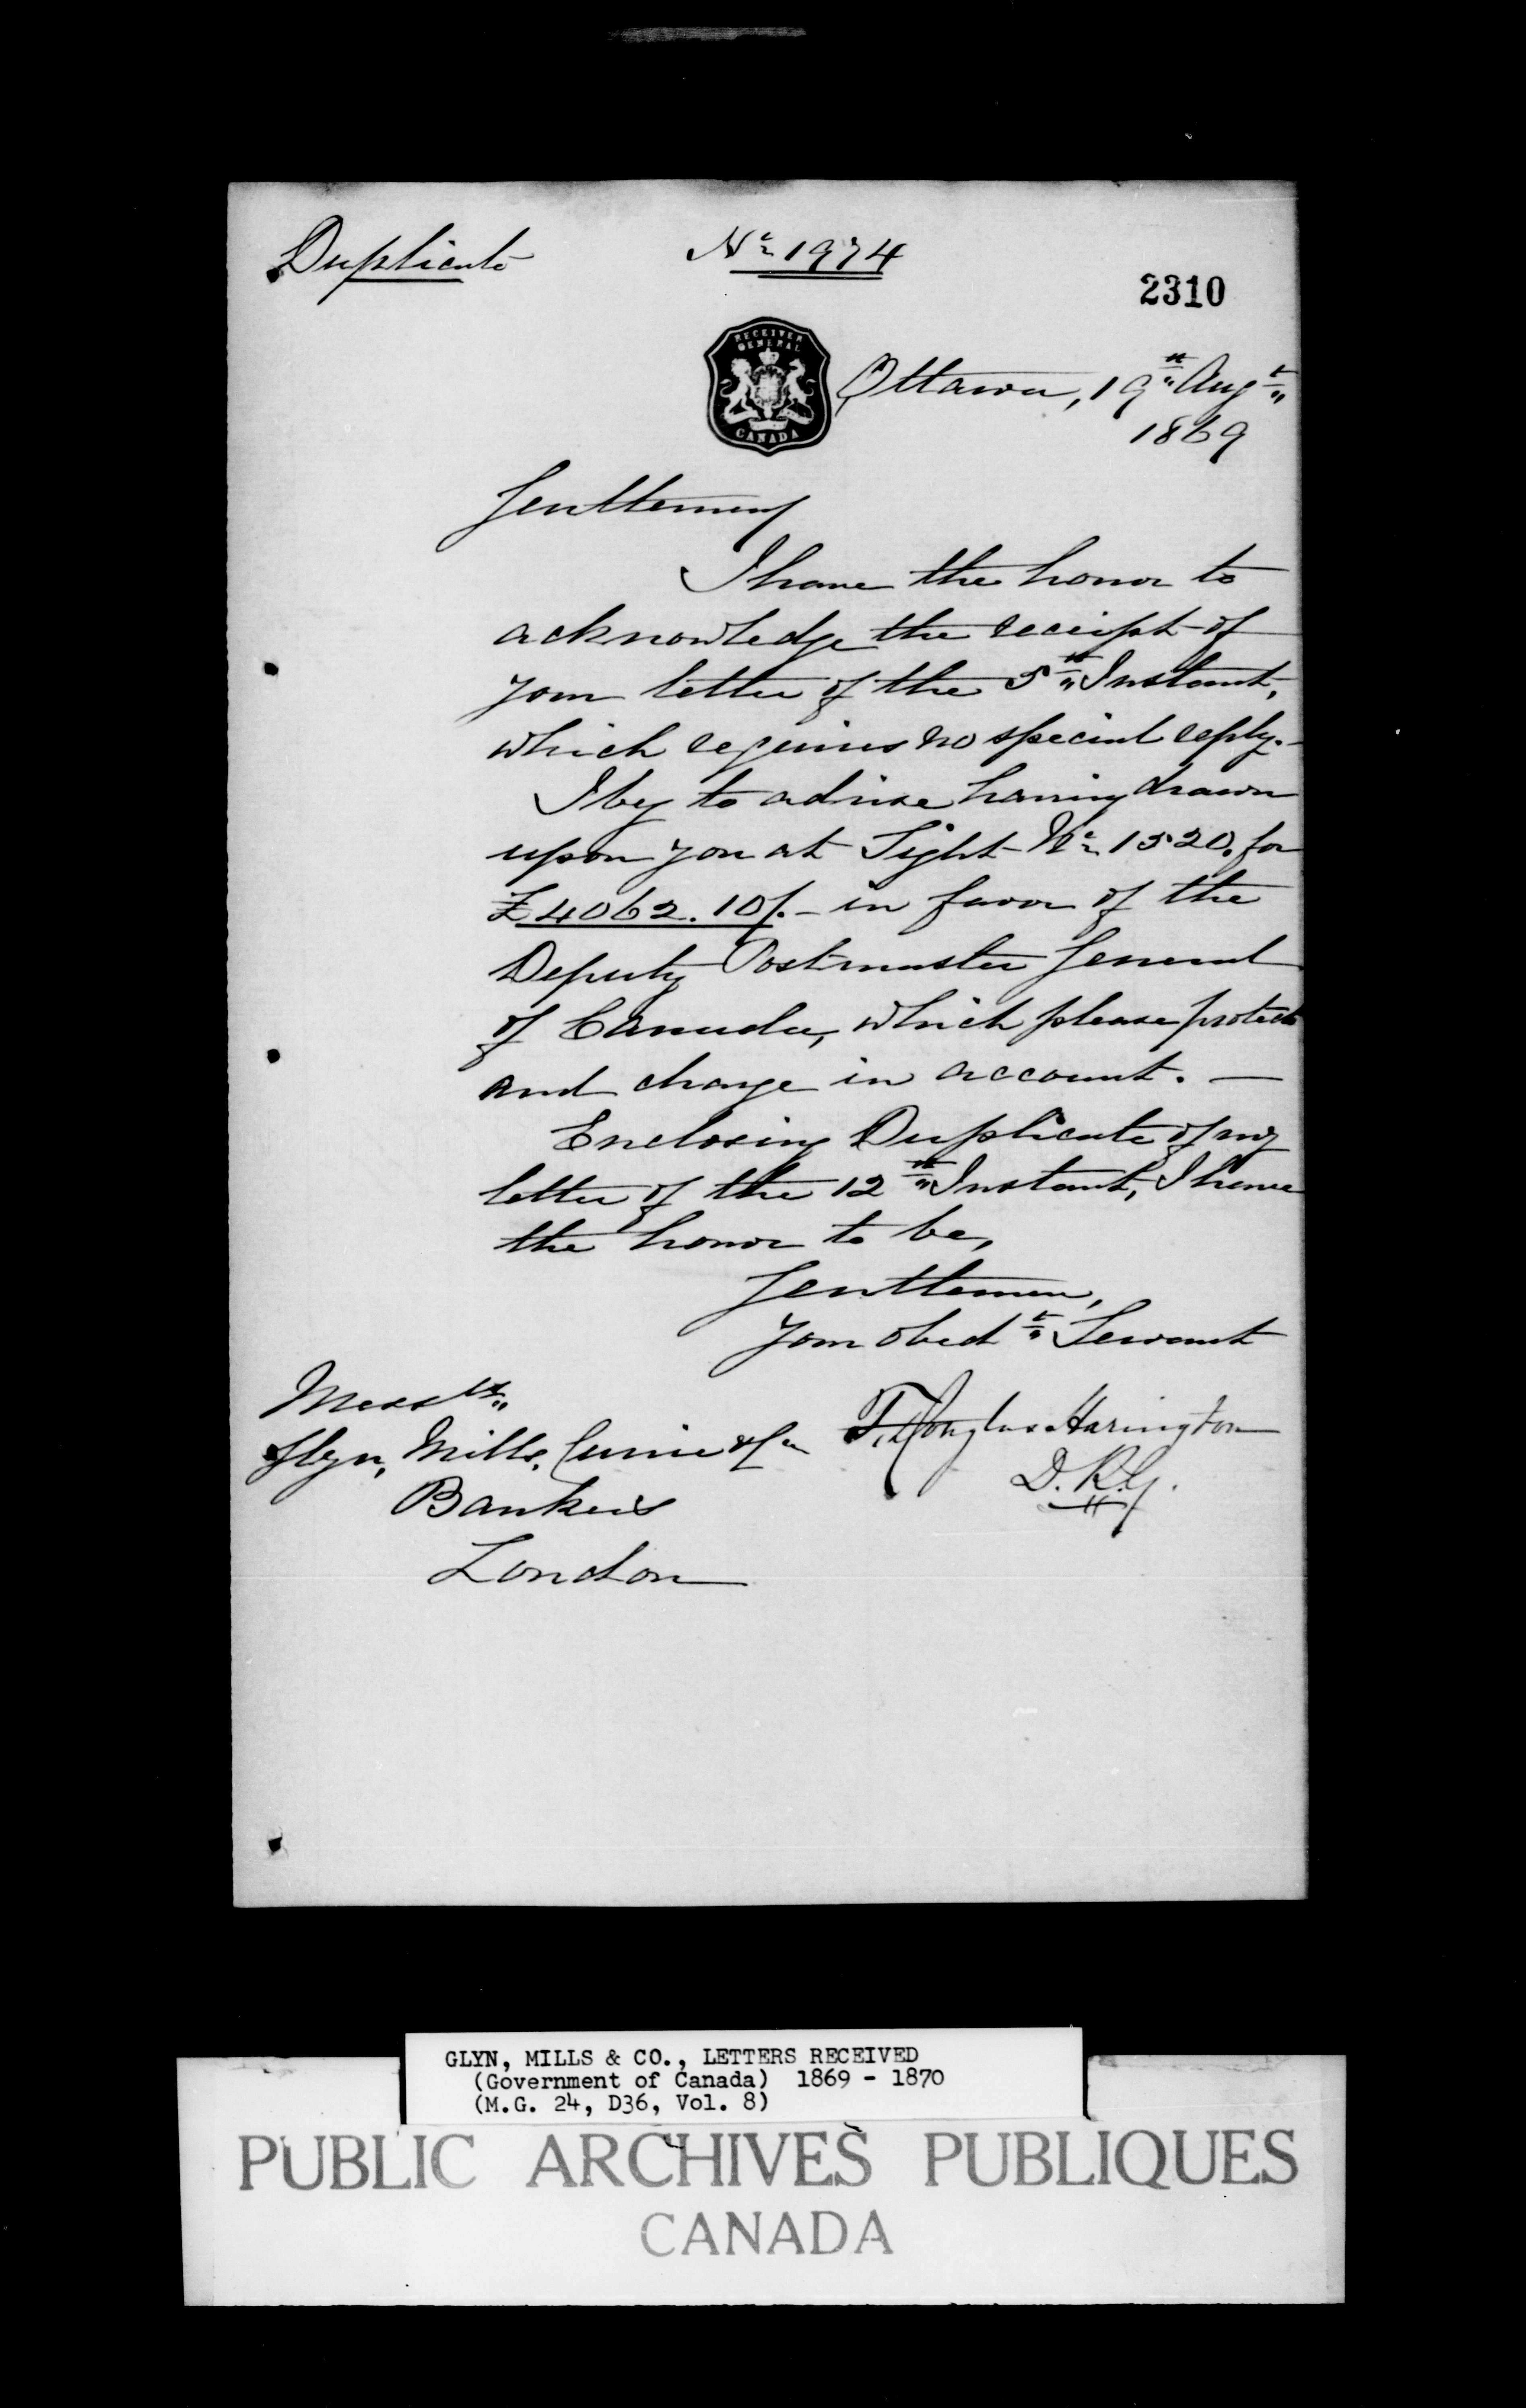 Duplicate
No 1974
2310
RECEIVER
GENERAL
CANADA
Ottawa, 19th Augt
1869
Gentlemen
I have the honor to
acknowledge the receipt of
your letter of the 5th Instant,
which requires no special reply.—
I beg to advise having drawn
upon you at Sight No 1520. for
£4062.10/.— in favor of the
Deputy Postmaster General
of Canada, which please protect
and charge in account. —
Enclosing Duplicate of my
letter of the 12th Instant, I have
the honor to be,
Gentlemen,
Your obedt Servant
T. Douglas Harington
D.R.G.
Messrs
Glyn, Mills, Currie & Co
Bankers
London
GLYN, MILLS & CO., LETTERS RECEIVED
(Government of Canada) 1869 - 1870
(M.G. 24, D36, Vol. 8)
PUBLIC ARCHIVES PUBLIQUES
CANADA